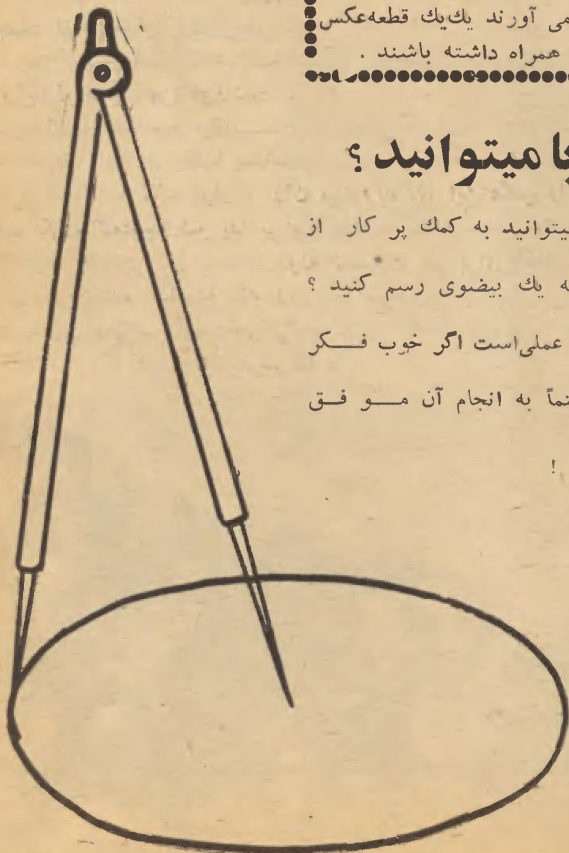 می آورند يك‌يك قطعه‌عکس
همراه داشته باشند .
میتوانید ؟
میتوانید به کمك پر کار از
يك بیضوی رسم کنید ؟
عملی‌است اگر خوب فـــکر
به انجام آن مـــو فــق
!